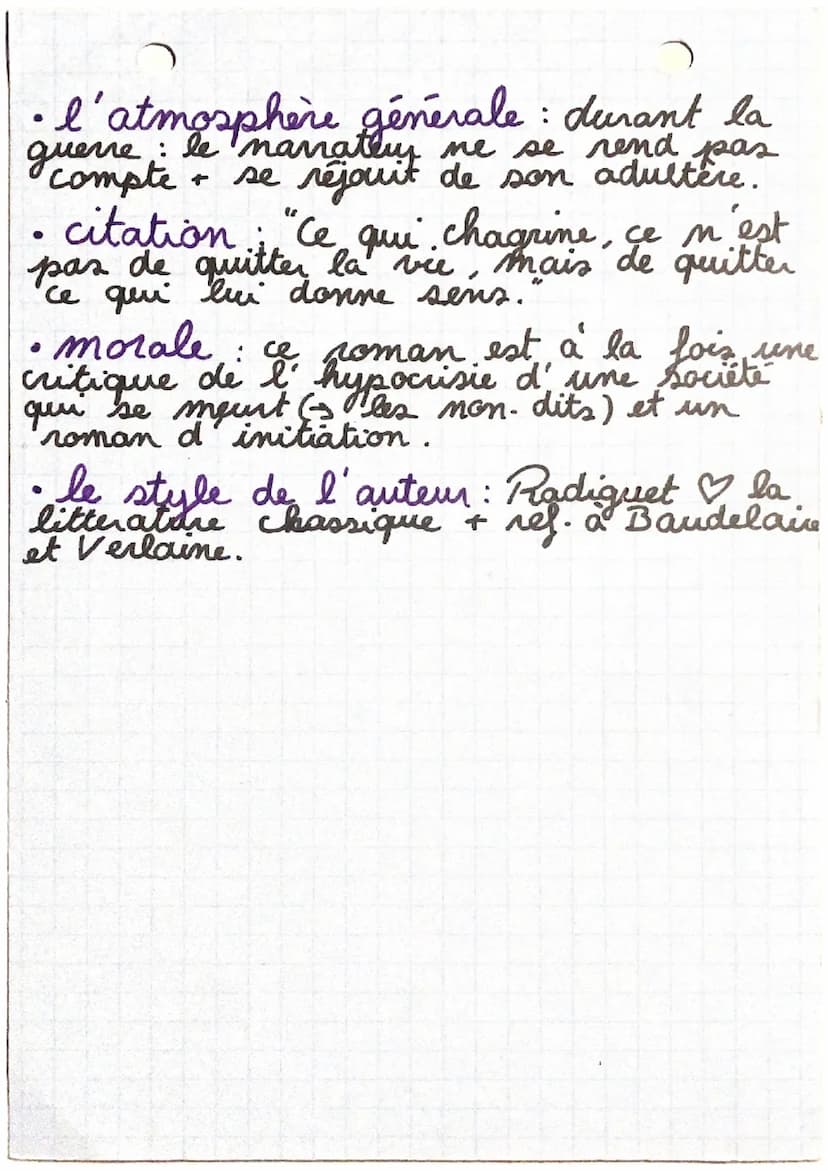 • l'atmosphère générale : durant la
guerre : le narrateur ne se rend pas
compte + se réjouit de son adultère.
• citation : "Ce qui chagrine, ce n'est
pas de quitter la vie, mais de quitter
ce qui lui donne sens."
• morale : ce roman est à la fois une
critique de l'hypocrisie d'une société
qui se meurt (→ les non-dits) et un
roman d'initiation.
• le style de l'auteur : Radiguet ♡ la
littérature classique + réf. à Baudelaire
et Verlaine.